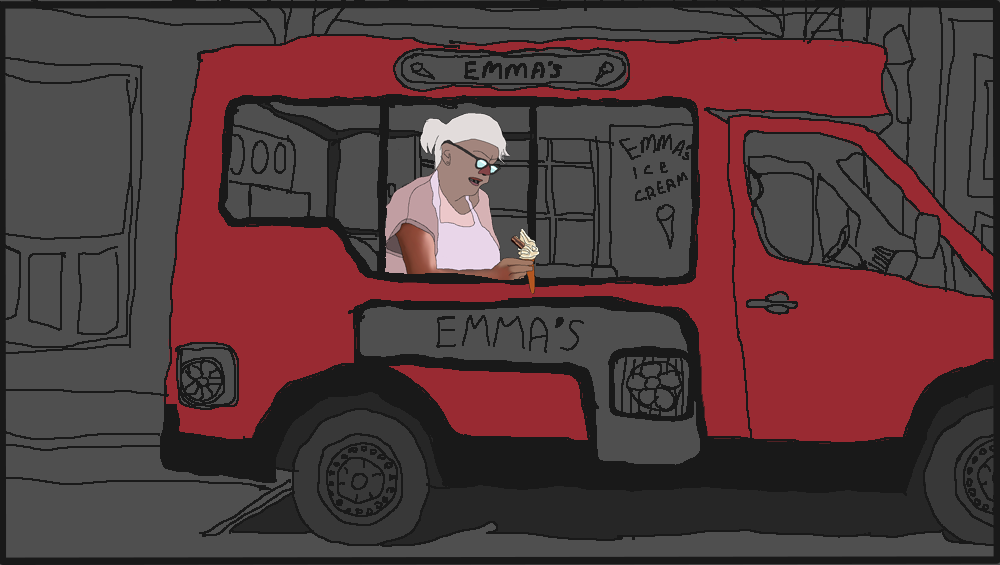 EMMA'S
EMMA'S
ICE
CREAM
EMMA'S